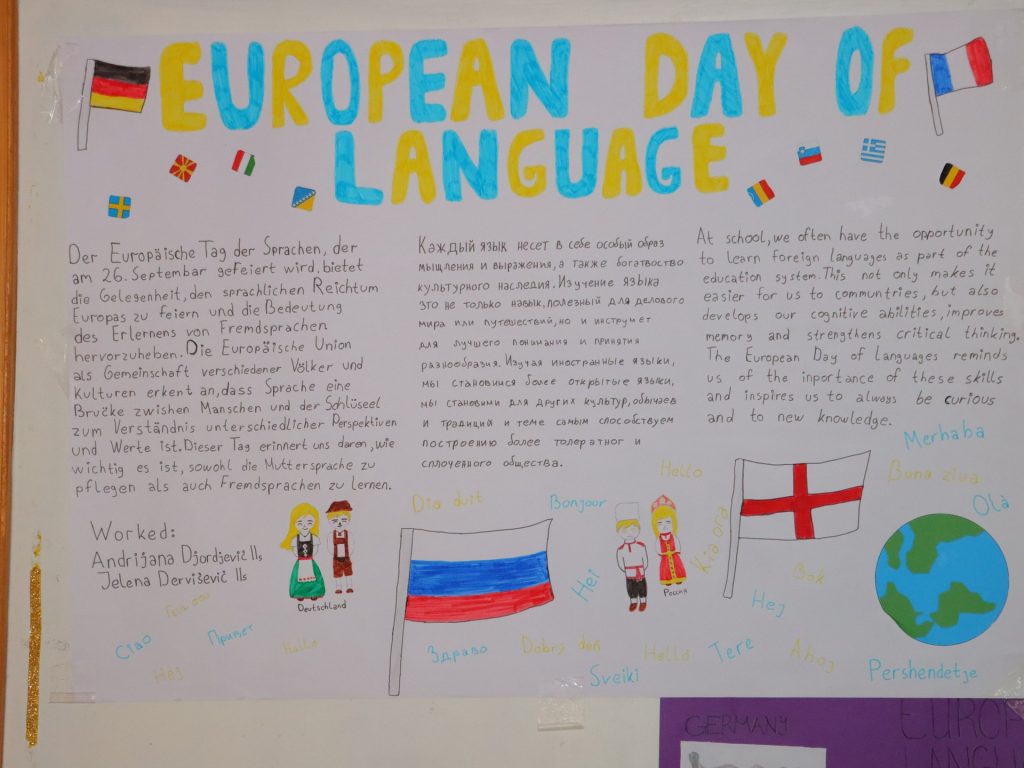 EUROPEAN DAY OF
LANGUAGE
Der Europäische Tag der Sprachen, der
am 26. Septembar gefeiert wird. bietet
die Gelegenheit, den sprachlichen Reichtum
Europas zu feiern und die Bedeutung
des Erlernens von Fremdsprachen
hervorzuheben. Die Europäische Union
als Gemeinschaft verschiedener Völker und
Kulturen erkent an, dass Sprache eine
Bručke zwishen Manschen und der Schlüseel
zum Verständnis unterschiedlicher Perspektiven
und Werte ist. Dieser Tag erinnert uns daren, wie
wichtig es ist, sowohl die Muttersprache zu
pflegen als auch Fremdsprachen zu lernen.
Каждый язык несет в себе особый образ
мышления и выражения, а также богатвоство
культурного наследия. Изучение языка
это не только навык, полезный для делового
мира или путешествий, но и инструмет
для лучшего понимания и принятия
разнообразия. Изучая иностранные языки,
мы становимся более открытые языки,
мы становими для других культур, обычаев
и традиций и теме самым способствуем
построению более толератног и
сплоченного общества.
At school, we often have the opportunity
to learn foreign languages as part of the
education system. This not only makes it
easier for us to communtries, but also
develops our cognitive abilities, improves
memory and strengthens critical thinking.
The European Day of Languages reminds
us of the inportance of these skills
and inspires us to always be curious
and to new knowledge.
Worked:
Andrijana Djordjević IIs
Jelena Dervišević IIs
Deutschland
Dia duit
Bonjour
Hello
Kia ora
Россия
Merhaba
Buna ziua
Olà
Hei
Bok
Hej
Ciao
Привет
Hallo
Hej
Здраво
Dobrý den
Sveiki
Hello
Tere
Ahoj
Pershendetje
GERMANY